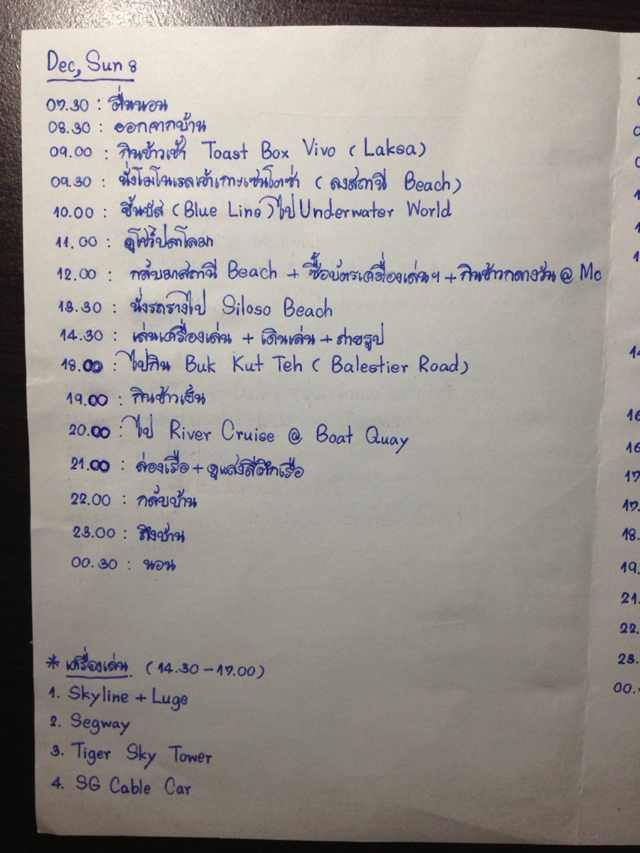 Dec, Sun 8
07.30 : ตื่นนอน
08.30 : ออกจากบ้าน
09.00 : กินข้าวเช้า Toast Box Vivo (Laksa)
09.30 : นั่งโมโนเรลเข้าเกาะเซ็นโตซ่า (ลงสถานี Beach)
10.00 : ขึ้นบัส (Blue Line) ไป Underwater World
11.00 : ดูโชว์ปลาโลมา
12.00 : กลับมาสถานี Beach + ซื้อบัตรเครื่องเล่นฯ + กินข้าวกลางวัน @ Mc
13.30 : นั่งรถรางไป Siloso Beach
14.30 : เล่นเครื่องเล่น + เดินเล่น + ถ่ายรูป
18.00 : ไปกิน Buk Kut Teh (Balestier Road)
19.00 : กินข้าวเย็น
20.00 : ไป River Cruise @ Boat Quay
21.00 : ล่องเรือ + ดูแสงสีตึกเรือ
22.00 : กลับบ้าน
23.00 : ถึงบ้าน
00.30 : นอน
* เครื่องเล่น (14.30 - 17.00)
1. Skyline + Luge
2. Segway
3. Tiger Sky Tower
4. SG Cable Car
16
16
17
17.
18.
19.
21.
22.
23.
00.